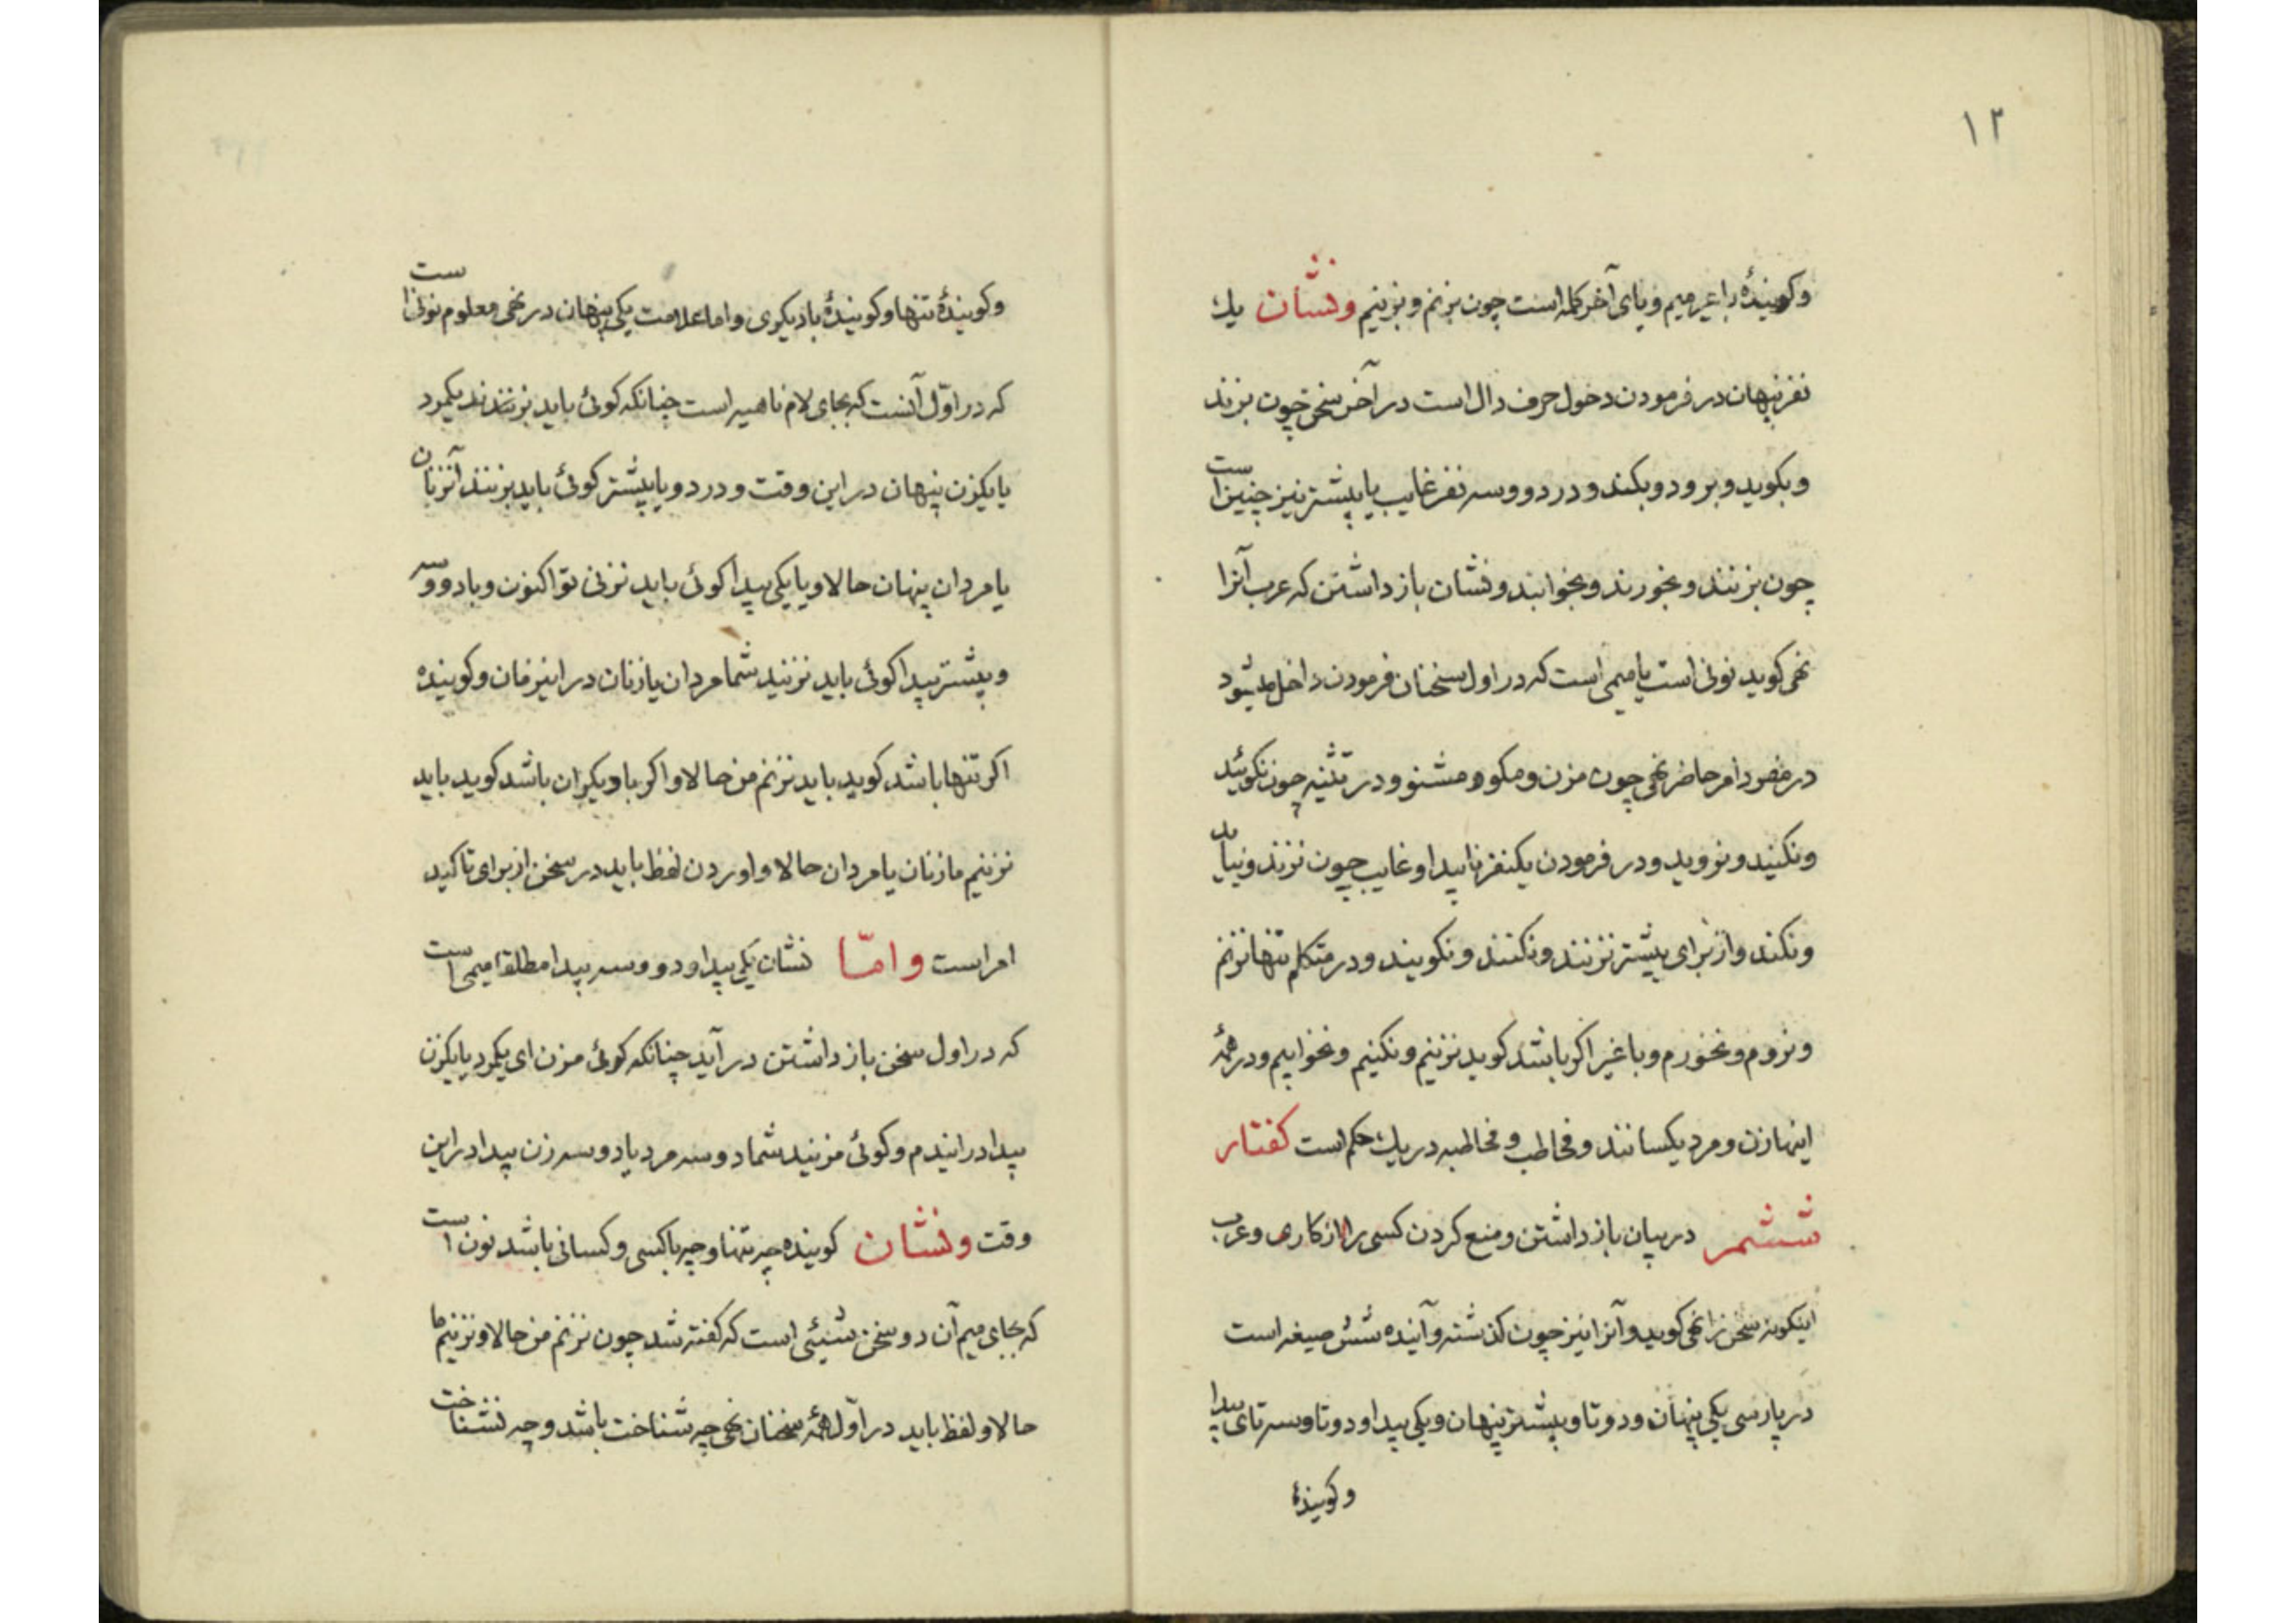 ۱۲
وکویندهٔ باغیر میم و یای آخر کلمه است چون بزنم و بزنیم ونشان یك
نفر پنهان در فرمودن دخول حرف دال است در آخر سخن چون بزند
و بکوید و برود و بکند و در دو و سه نفر غایب یا بیشتر نیز چنین است
چون بزنند و بخورند و بخوانند و نشان باز داشتن که عرب آنرا
نهی کوید نونی است یا میمی است که در اول سخنان فرمودن داخل میشود
در مفرد امر حاضر نهی چون مزن و مکو و مشنو و در تثنیه چون نکوئید
و نکنید و نروید و در فرمودن یکنفر ناپیدا و غایب چون نزند و نیاید
و نکند و از برای بیشتر نزنند و نکنند و نکویند و در متکلم تنها نزنم
و نروم و نخورم و با غیر اکر باشد کوید نزنیم و نکنیم و نخوابیم و در همهٔ
اینها زن و مرد یکسانند و مخاطب و مخاطبه در یك حکم است کفتار
ششمر در بیان باز داشتن و منع کردن کسی را از کاری و عرب
اینکونه سخن را نهی کوید و آنرا نیز چون کذشته و آینده شش صیغه است
در پارسی یکی پنهان و دو تا و بیشتر پنهان و یکی پیدا و دو تا و سه تای پیدا
وکویندهٔ
وکویندهٔ تنها وکویندهٔ با دیکری و اما علامت یکی پنهان در نهی معلوم نونی است
که در اوّل آنست که بجای لام ناهیه است چنانکه کوئی باید نزند یکمرد
یا یکزن پنهان در این وقت و در دو یا بیشتر کوئی باید نزنند آنزنان
یا مردان پنهان حالا و یا یکی پیدا کوئی باید نزنی تو اکنون و با دو و سه
و بیشتر پیدا کوئی باید نزنید شما مردان یا زنان در اینزمان و کوینده
اکر تنها باشد کوید باید نزنم من حالا و اکر با دیکران باشد کوید باید
نزنیم ما زنان یا مردان حالا و اوردن لفظ باید در سخن از برای تاکید
امر است وامّا نشان یکی پیدا و دو و سه پیدا مطلقا میمی است
که در اول سخن باز داشتن در آید چنانکه کوئی مزن ای یکمرد یا یکزن
پیدا در ایندم و کوئی مزنید شما دو سه مرد یا دو سه زن پیدا در این
وقت ونشان کوینده چه تنها و چه با کسی و کسانی باشد نون است
که بجای میم آن دو سخن شیئی است که کفته شد چون نزنم من حالا و نزنیم ما
حالا و لفظ باید در اوّل همهٔ سخنان نهی چه شناخت باشد و چه نشناخت